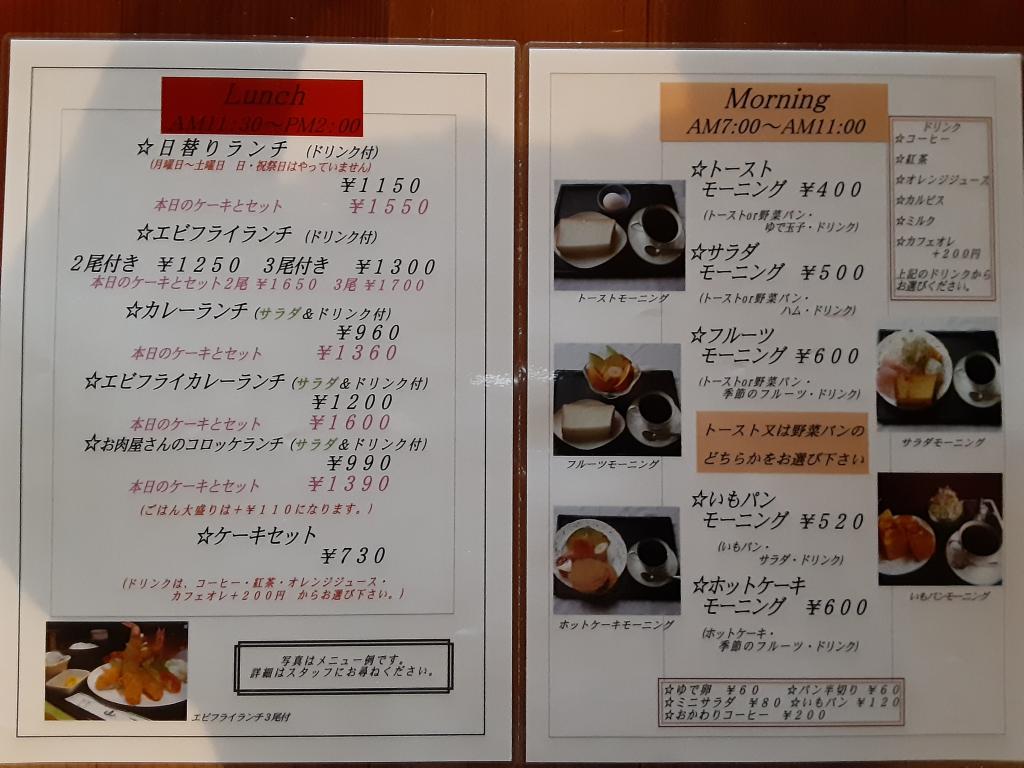 Lunch
AM11:30～PM2:00
☆日替りランチ (ドリンク付)
(月曜日～土曜日 日・祝祭日はやっていません)
¥1150
本日のケーキとセット ¥1550
☆エビフライランチ (ドリンク付)
2尾付き ¥1250 3尾付き ¥1300
本日のケーキとセット2尾 ¥1650 3尾 ¥1700
☆カレーランチ (サラダ&ドリンク付)
¥960
本日のケーキとセット ¥1360
☆エビフライカレーランチ (サラダ&ドリンク付)
¥1200
本日のケーキとセット ¥1600
☆お肉屋さんのコロッケランチ (サラダ&ドリンク付)
¥990
本日のケーキとセット ¥1390
(ごはん大盛りは+¥110になります。)
☆ケーキセット
¥730
(ドリンクは、コーヒー・紅茶・オレンジジュース・
カフェオレ+200円 からお選び下さい。)
写真はメニュー例です。
詳細はスタッフにお尋ねください。
エビフライランチ3尾付
Morning
AM7:00～AM11:00
☆トースト
モーニング ¥400
(トーストor野菜パン・
ゆで玉子・ドリンク)
トーストモーニング
☆サラダ
モーニング ¥500
(トーストor野菜パン・
ハム・ドリンク)
☆フルーツ
モーニング ¥600
(トーストor野菜パン・
季節のフルーツ・ドリンク)
フルーツモーニング
トースト又は野菜パンの
どちらかをお選び下さい
☆いもパン
モーニング ¥520
(いもパン・
サラダ・ドリンク)
☆ホットケーキ
モーニング ¥600
(ホットケーキ・
季節のフルーツ・ドリンク)
ホットケーキモーニング
ドリンク
☆コーヒー
☆紅茶
☆オレンジジュース
☆カルピス
☆ミルク
☆カフェオレ
+200円
上記のドリンクから
お選びください。
サラダモーニング
いもパンモーニング
☆ゆで卵 ¥60 ☆パン半切り ¥60
☆ミニサラダ ¥80 ☆いもパン ¥120
☆おかわりコーヒー ¥200